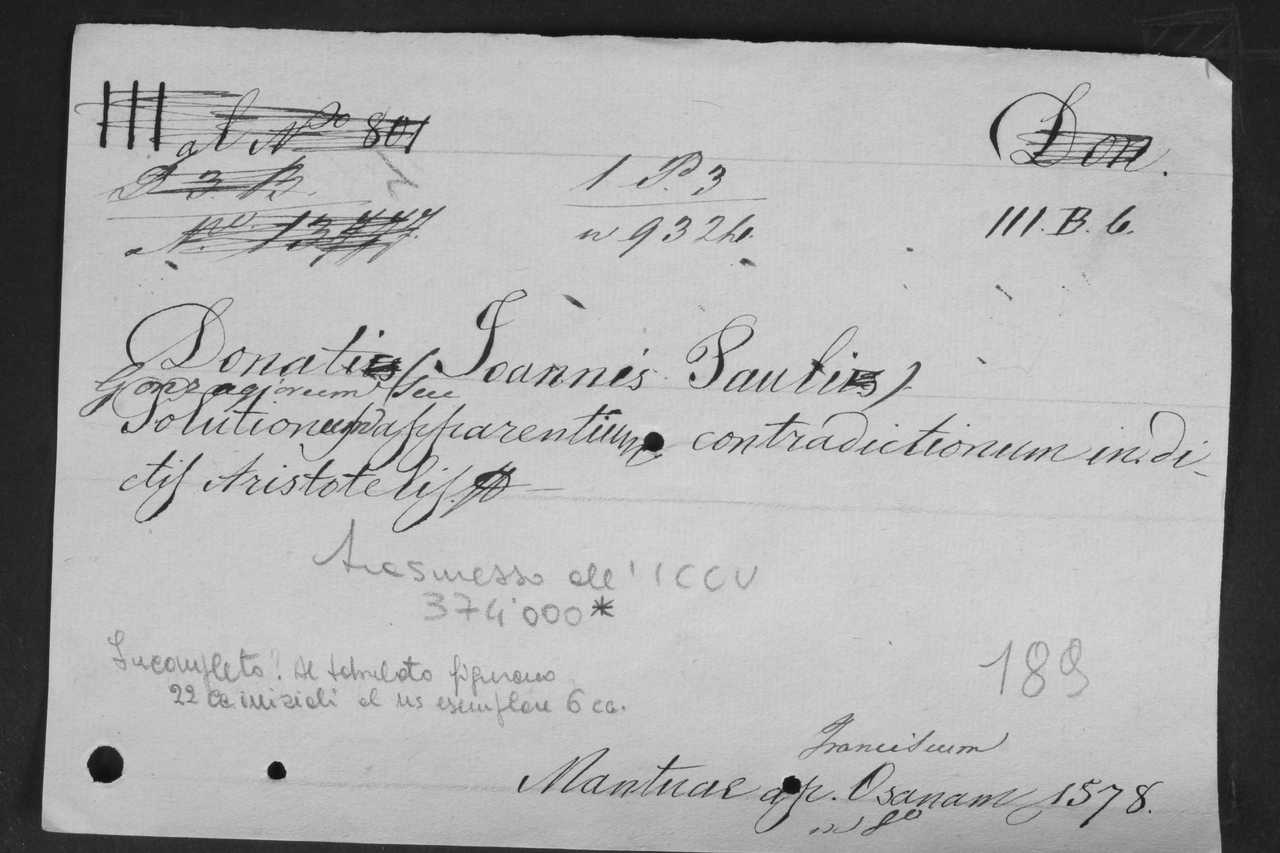 III al N.º 801
Don.
P 3. B.
1 P. 3
N.º 13777.
n 9326.
III. B. 6.
Donatis (Joannis Paulis)
Gonzagiorum seu
Solutionum apparentium contradictionum in di-
ctis Aristotelis
trasmesso all'ICCU
374'000*
Incompleto! Al schedato figurano
22 cc iniziali al ns esemplare 6 cc.
189
Franciscum
Mantuae ap. Osanam 1578.
in 8º